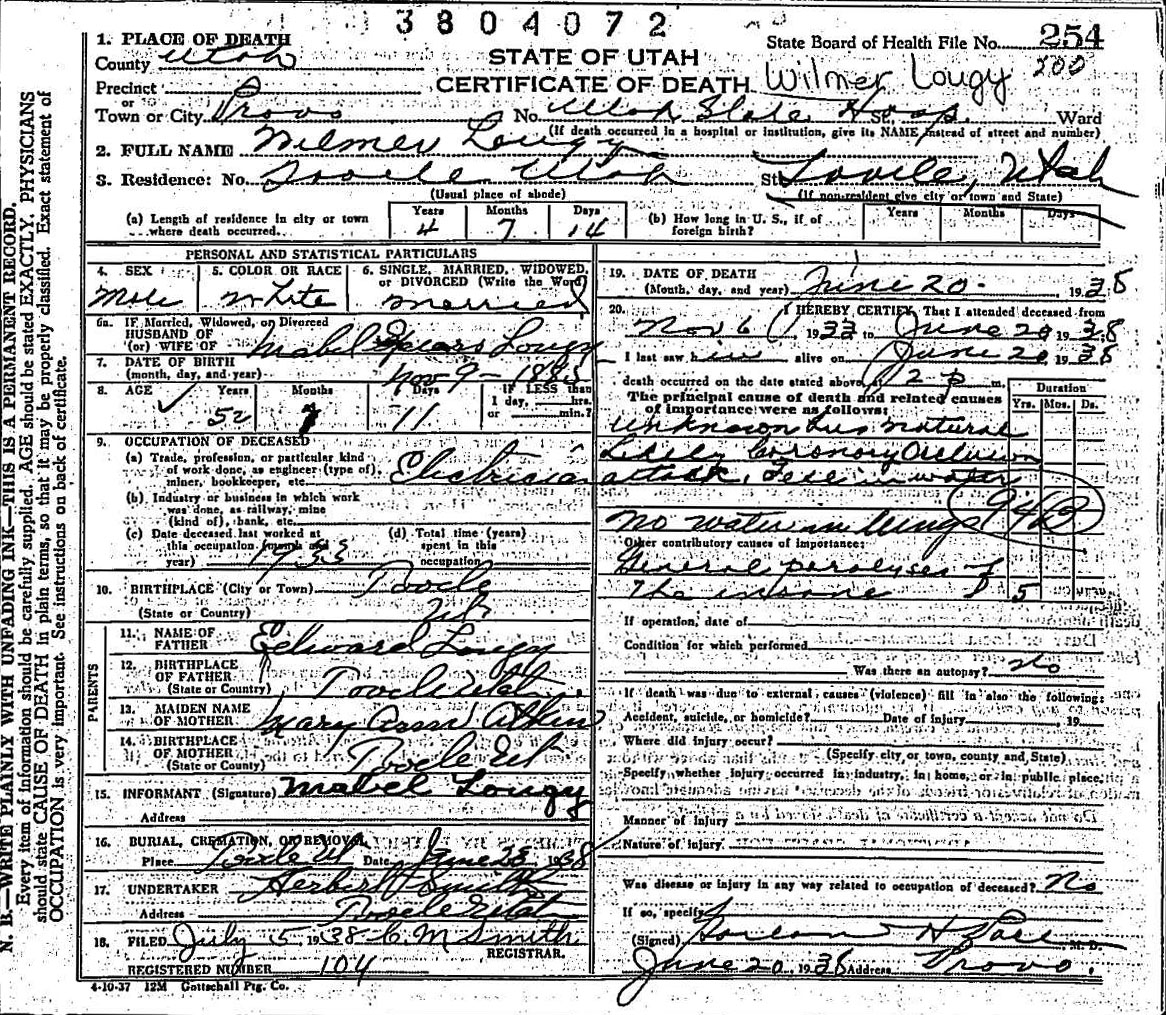 3804072
1. PLACE OF DEATH
County Utah
STATE OF UTAH
CERTIFICATE OF DEATH
State Board of Health File No. 254
Wilmer Lougy 200
Precinct
or
Town or City Provo No. Utah State Hosp. St. Ward
(If death occurred in a hospital or institution, give its NAME instead of street and number)
2. FULL NAME Wilmer Lougy
3. Residence: No. Tooele Utah St. Tooele, Utah
(Usual place of abode) (If non-resident give city or town and State)
(a) Length of residence in city or town where death occurred. Years 4 Months 7 Days 14 (b) How long in U. S., if of foreign birth? Years Months Days
PERSONAL AND STATISTICAL PARTICULARS
4. SEX Male
5. COLOR OR RACE White
6. SINGLE, MARRIED, WIDOWED, or DIVORCED (Write the Word) Married
6a. IF Married, Widowed, or Divorced
HUSBAND OF
(or) WIFE OF Mabel Spears Lougy
7. DATE OF BIRTH
(month, day, and year) Nov 9 - 1885
8. AGE Years 52 Months 7 Days 11 IF LESS than 1 day, hrs. or min.?
9. OCCUPATION OF DECEASED
(a) Trade, profession, or particular kind of work done, as engineer (type of), miner, bookkeeper, etc. Electrician
(b) Industry or business in which work was done, as railway, mine (kind of), bank, etc.
(c) Date deceased last worked at this occupation (month and year) 1933
(d) Total time (years) spent in this occupation
10. BIRTHPLACE (City or Town) Tooele
(State or Country) Ut
PARENTS
11. NAME OF FATHER Edward Lougy
12. BIRTHPLACE OF FATHER
(State or Country) Tooele Utah
13. MAIDEN NAME OF MOTHER Mary Ann Atkin
14. BIRTHPLACE OF MOTHER
(State or County) Tooele Ut
15. INFORMANT (Signature) Mabel Lougy
Address
16. BURIAL, CREMATION, OR REMOVAL
Place Tooele Ut Date June 23, 1938
17. UNDERTAKER Herbert Smith
Address Tooele Utah
18. FILED July 5, 1938 C M Smith
REGISTRAR.
REGISTERED NUMBER 104
4-10-37 12M Gottschall Ptg. Co.
19. DATE OF DEATH
(Month, day, and year) June 20 - 1938
20. I HEREBY CERTIFY, That I attended deceased from
Nov 6 1933 to June 20 1938
I last saw him alive on June 20, 1938
death occurred on the date stated above, at 2 p m.
Duration
Yrs. Mos. Ds.
The principal cause of death and related causes of importance were as follows:
Unknown but natural
Likely Coronary Occlusion
attack, Fell in water
No water in lungs 94B
Other contributory causes of importance:
General paralyses of
The insane 5
If operation, date of
Condition for which performed
Was there an autopsy? No
If death was due to external causes (violence) fill in also the following:
Accident, suicide, or homicide? Date of injury 19
Where did injury occur?
(Specify city or town, county and State)
Specify whether injury occurred in industry, in home, or in public place,
Manner of injury
Nature of injury
Was disease or injury in any way related to occupation of deceased? No
If so, specify
(Signed) H M. D.
June 20, 1938 Address Provo.
N. B.—WRITE PLAINLY WITH UNFADING INK—THIS IS A PERMANENT RECORD.
Every item of information should be carefully supplied. AGE should be stated EXACTLY. PHYSICIANS
should state CAUSE OF DEATH in plain terms, so that it may be properly classified. Exact statement of
OCCUPATION is very important. See instructions on back of certificate.